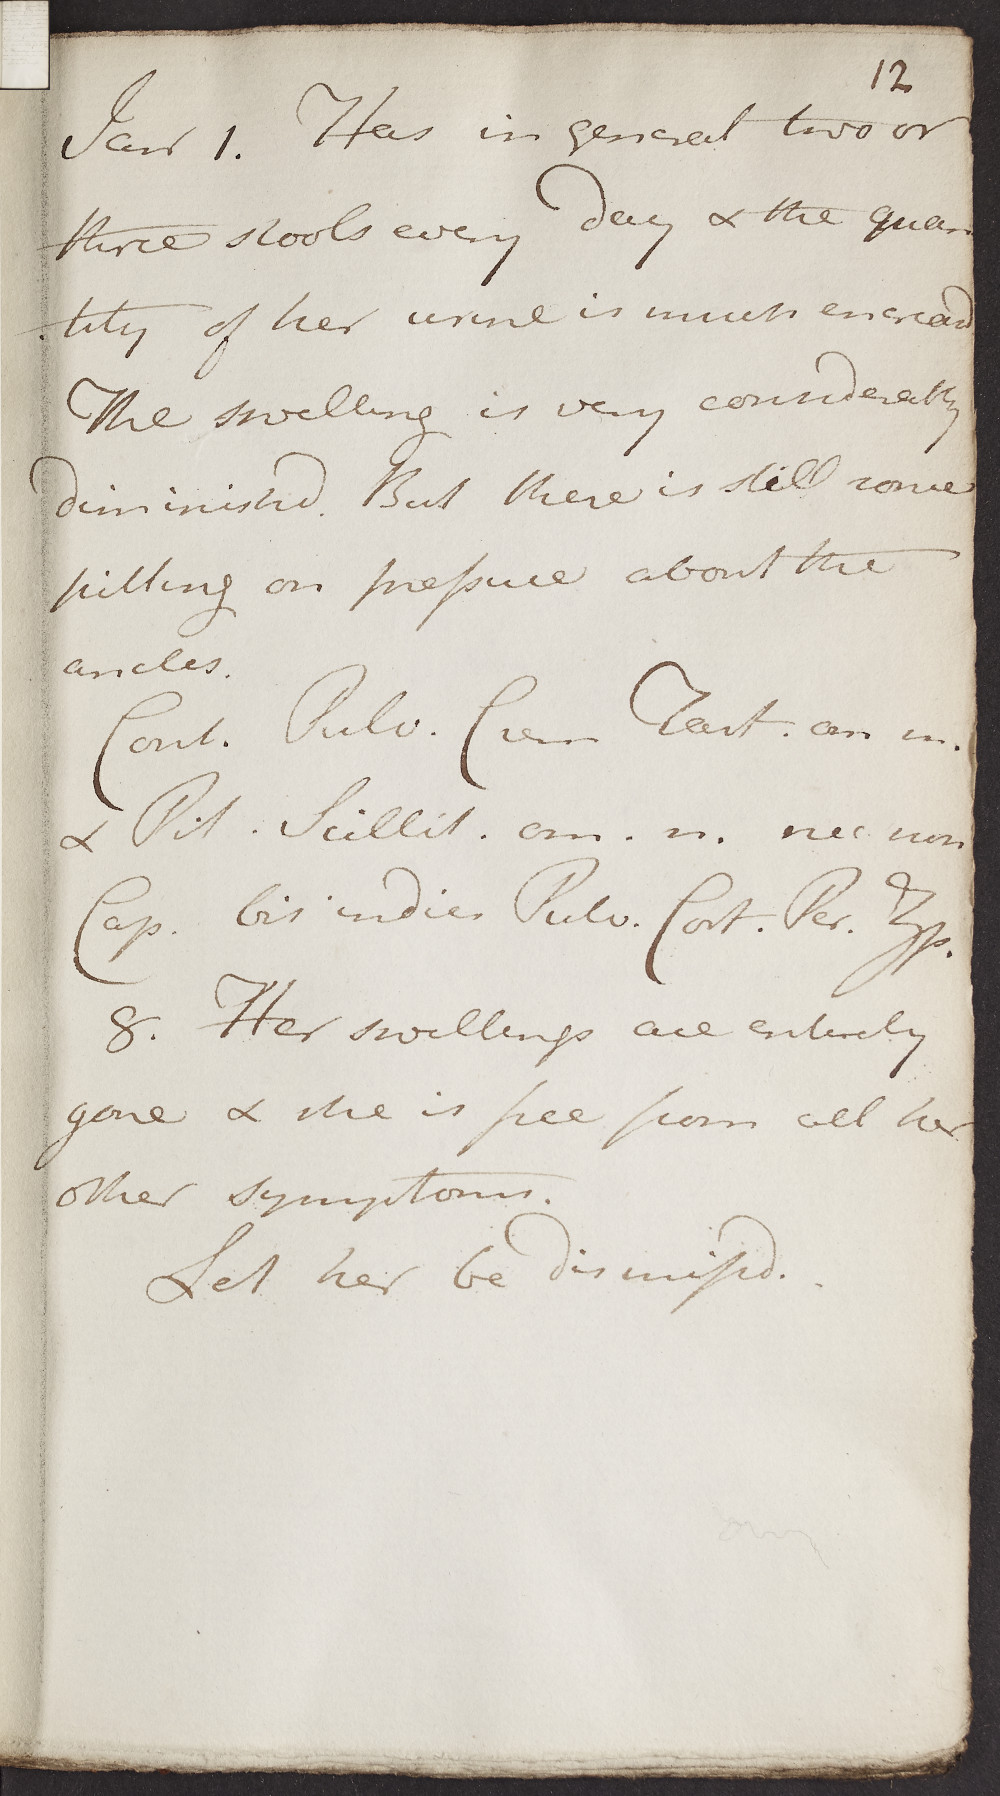 12
Janr 1. Has in general two or
three stools every day & the quan
tity of her urine is much encreasd
The swelling is very considerably
diminishd. But there is still some
pitting on preſsure about the
ancles.
Cont. Pulv. Crem Tart. an m.
& Pil. Scillit. om. n. nec non
Cap. bis indies Pulv. Cort. Per. ʒſs.
8. Her swellings are entirely
gone & she is free from all her
other symptoms.
Let her be dismiſsd.